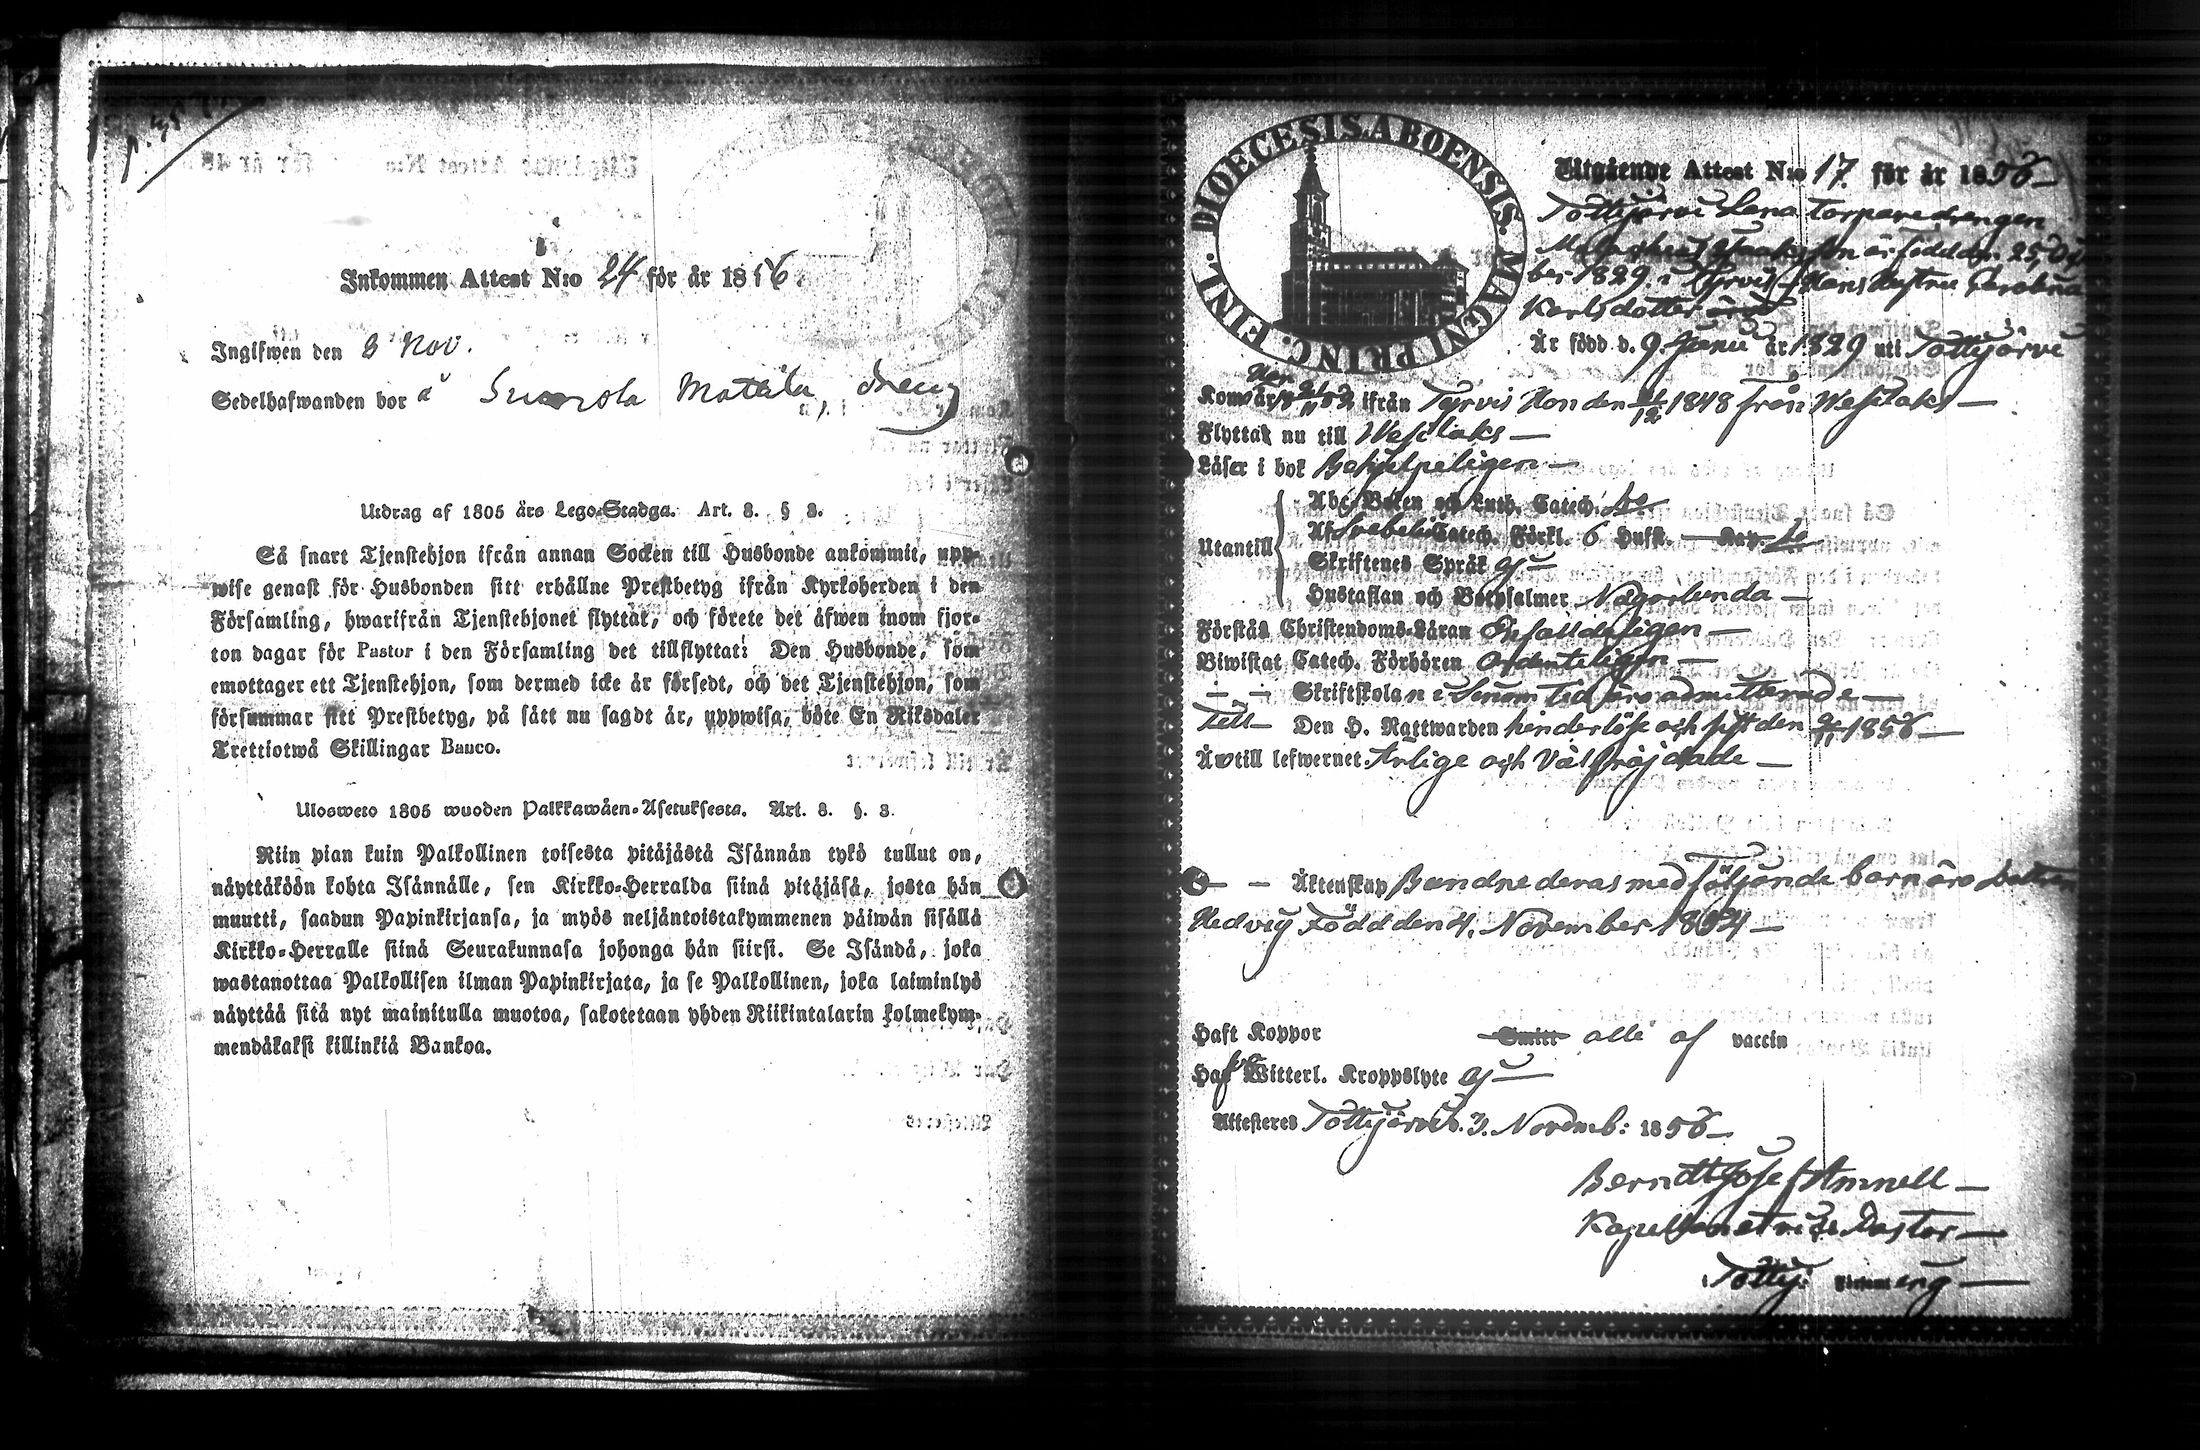 Inkommen Attest N:o 24 för år 1856.
Ingifwen den 8 Nov.
Sedelhafwanden bor å Suonola Mattila, dreng
Utdrag af 1805 års Lego-Stadga. Art. 8. § 3.
Så snart Tjenstehjon ifrån annan Socken till Husbonde ankommit, upp-
wise genast för Husbonden sitt erhållne Prestbetyg ifrån Kyrkoherden i den
Församling, hwarifrån Tjenstehjonet flyttat, och förete det äfwen inom fjor-
ton dagar för Pastor i den Församling det tillflyttat: Den Husbonde, som
emottager ett Tjenstehjon, som dermed icke är försedt, och det Tjenstehjon, som
försummar sitt Prestbetyg, på sätt nu sagdt är, uppwisa, böte En Riksdaler
Trettiotwå Skillingar Banco.
Ulosweto 1805 wuoden Palkkawäen-Asetuksesta. Art. 8. §. 3.
Niin pian kuin Palkollinen toisesta pitäjästä Isännän tykö tullut on,
näyttäköön kohta Isännälle, sen Kirkko-Herralda siinä pitäjäsä, josta hän
muutti, saadun Papinkirjansa, ja myös neljäntoistakymmenen päiwän sisällä
Kirkko-Herralle siinä Seurakunnasa johonga hän siirsi. Se Isändä, joka
wastanottaa Palkollisen ilman Papinkirjata, ja se Palkollinen, joka laiminlyö
näyttää sitä nyt mainitulla muotoa, sakotetaan yhden Riikintalarin kolmekym-
mendäkaksi killinkiä Bankoa.
DIOECESIS ABOENSIS. MAGNI PRINC. FINL.
Utgående Attest N:o 17. för år 1856
Tottijärvi Torparedrengen
är född den 25
ber 1829 i Tyrvis Hans Hustru
Karlsdotter
Är född d. 9. Junii år 1829 uti Tottijärvi
Kom år ifrån Tyrvis Hon den 1848 från Wesilaks
Flyttat nu till Wesilaks
Läser i bok
Utantill
Abc-Boken och Luth. Catech.
Af Svebelii Catech. Förkl. 6 Hufst. Kap.
Skriftenes Språk ej
Hustaflan och Botpsalmer Någorlunda
Förstå Christendoms-Läran Enfaldeligen
Biwistat Catech. Förhören Ordenteligen
Skriftskolan i sinom tid äro admitterade
Till Den H. Nattwarden hinderlöse och sist den 1856
Äro till lefwernet Ärlige och Välfräjdade
Äktenskap med följande barn
Hedvig Född den 4. November 1854
Haft Koppor alle af vaccin
Haf Witterl. Kroppslyte ej
Attesteres Tottijärvi d. 3. Novemb: 1856
Berndt Josef Amnell
Kapellan et vice Pastor
i Tottij: Församling